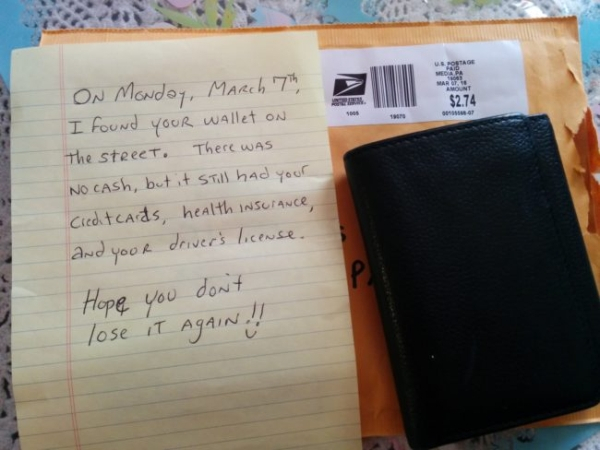 On Monday, March 7th,
I found your wallet on
the street. There was
no cash, but it still had your
credit cards, health insurance,
and your driver's license.
Hope you don't
lose it again!!
U.S. POSTAGE
PAID
MEDIA, PA
AMOUNT
$2.74
UNITED STATES
POSTAL SERVICE
1006
P